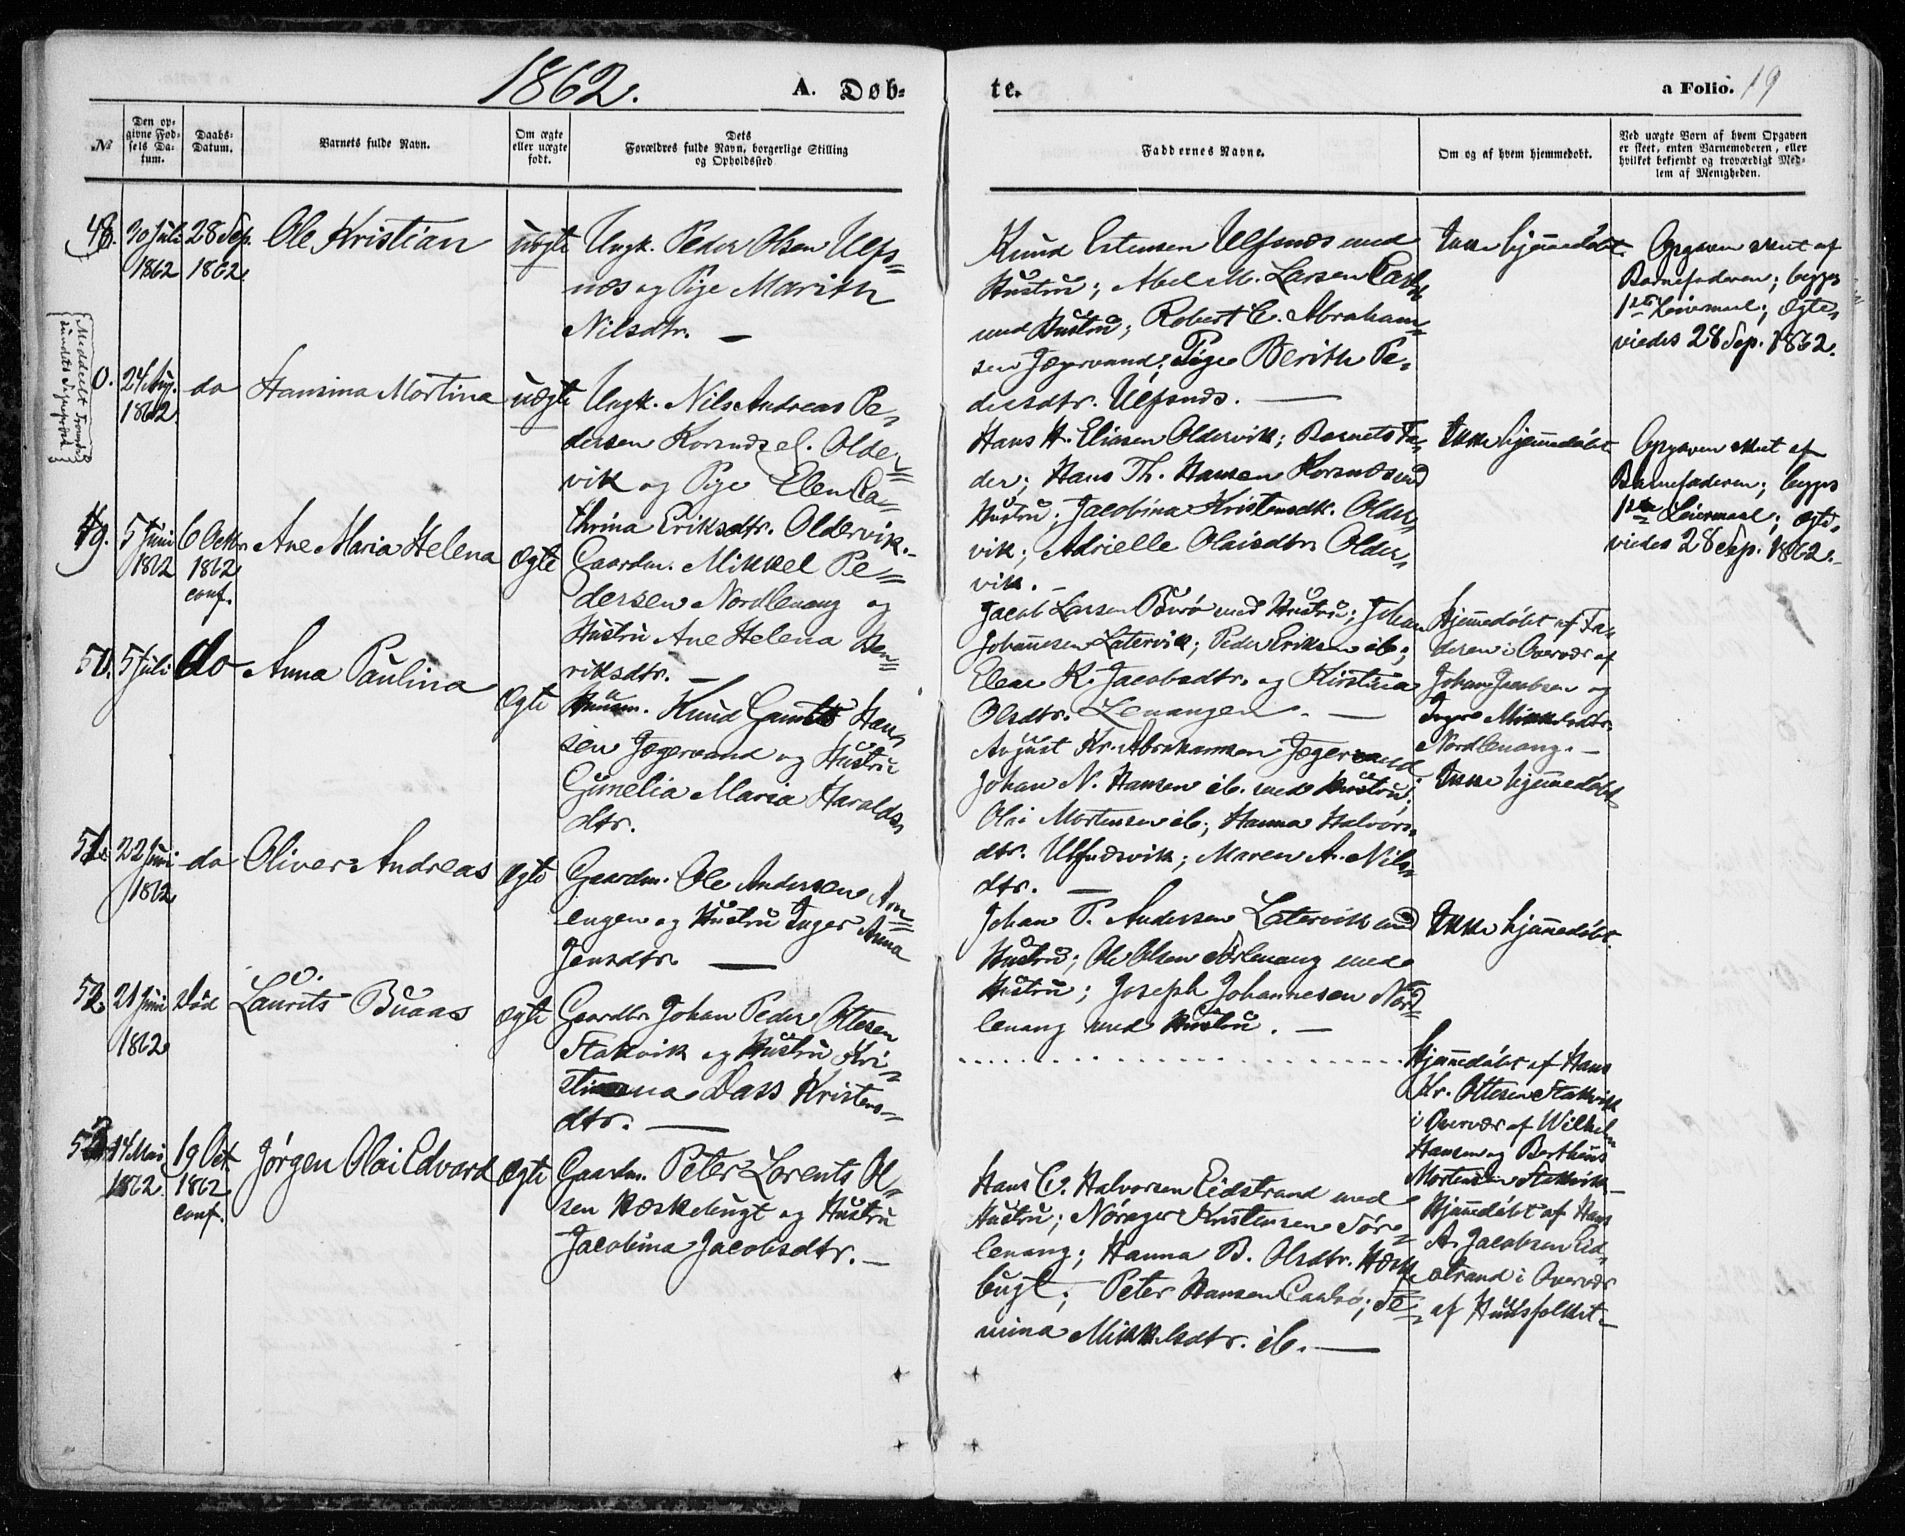 1862.
A. Døb-
te.
a Folio. 19
№
Den op-
givne Fød-
sels Da-
tum.
Daabs-
Datum.
Barnets fulde Navn.
Om ægte
eller uægte
født.
Dets
Forældres fulde Navn, borgerlige Stilling
og Opholdssted
Faddernes Navne.
Om og af hvem hjemmedøbt.
Ved uægte Børn af hvem Opgaven
er skeet, enten Barnemoderen, eller
hvilket bekjendt og troværdigt Med-
lem af Menigheden.
48.
30 Juli
1862
28 Sep.
1862.
Ole Kristian
uægte
Ungk. Peder Olsen Ulfs-
næs og Pige Marith
Nilsdtr. —
Knud Estensen Ulfsnæs med
Hustru; Abel M. Larsen
med Hustru; Robert E. Abraham-
sen Jægervand; Pige Berith Pe-
dersdtr. Ulfsnæs. —
Ikke hjemmedøbt.
Opgaven skeet af
Barnefaderen; begges
1ste Leiermaal; ægte-
viedes 28 Sep. 1862.
0.
24 Aug.
1862.
do
Hansina Mortina
uægte
Ungk. Nils Andreas Pe-
dersen Kornæs el. Older-
vik og Pige Elen Ca-
thrina Eriksdtr. Oldervik.-
Hans H. Eliasen Oldervik; Barnets Fa-
der; Hans Th. Hansen Kornæs med
Hustru; Jacobina Kristensdtr. Older-
vik; Adrielle Olaisdtr. Older-
vik. -
Ikke hjemmedøbt
Opgaven skeet af
Barnefaderen; begges
1ste Leiermaal; ægte-
viedes 28 Sep. 1862.-
49.
5 Juni
1862
6 Octbr.
1862
conf.
Ane Maria Helena
Ægte
Gaardm. Mikkel Pe-
dersen Nordlenang og
Hustru Ane Helena Hen-
riksdtr. —
Jacob Larsen med Hustru; Johan
Johannesen Latervik; Peder Eriksen ib;
Elene K. Jacobsdtr. og Kirstina
Olsdtr. Lenangen. —
Hjemmedøbt af Fa-
deren i Overvær af
Johan Jacobsen og
Inger Mikkelsdtr.
Nordlenang. —
50.
5 Juli
do
Anna Paulina
Ægte
Huusm. Knud Han-
sen Jægervand og Hustru
Gunelia Maria Haralds-
dtr.
August Kr. Abrahamsen Jægervand
Johan N. Hansen ib. med Hustru;
Olai Mortensen ib; Hanna Halvors-
dtr. Ulfsnæsvik; Maren A. Nils-
dtr. —
Ikke hjemmedøbt
51.
22 Juni
1862
do
Oliver Andreas
Ægte
Gaardm. Ole Andersen
engen og Hustru Inger Anna
Jensdtr. —
Johan P. Andersen Latervik med
Hustru; Ole Olsen Sørlenang med
Hustru; Joseph Johannesen Nord-
lenang med Hustru. —
Ikke hjemmedøbt.
52.
21 Juni
1862
død
Laurits Buaas
Ægte
Gaardbr. Johan Peder Ottesen
Stakvik og Hustru Kri-
stina Dass Kristens-
dtr. —
Hjemmedøbt af Hans
Kr. Ottesen Stakvik
i Overvær af Wilhelm
Hansen og Berthéus
Mortensen Stakvik. —
53.
14 Mai
1862
19 Oct.
1862
conf.
Jørgen Olai Edvard
Ægte
Gaardm. Peter Lorents Ol-
sen Kæskebugt og Hustru
Jacobina Jacobsdtr. —
Hans C. Halvorsen Eidstrand med
Hustru; Nøreger Kristensen Sør-
lenang; Hanna B. Olsdtr.
bugt; Peter Hansen
mina Mikkelsdtr. ib. —
Hjemmedøbt af Hans
A. Jacobsen Eid-
strand i Overvær
af Huusfolket. —